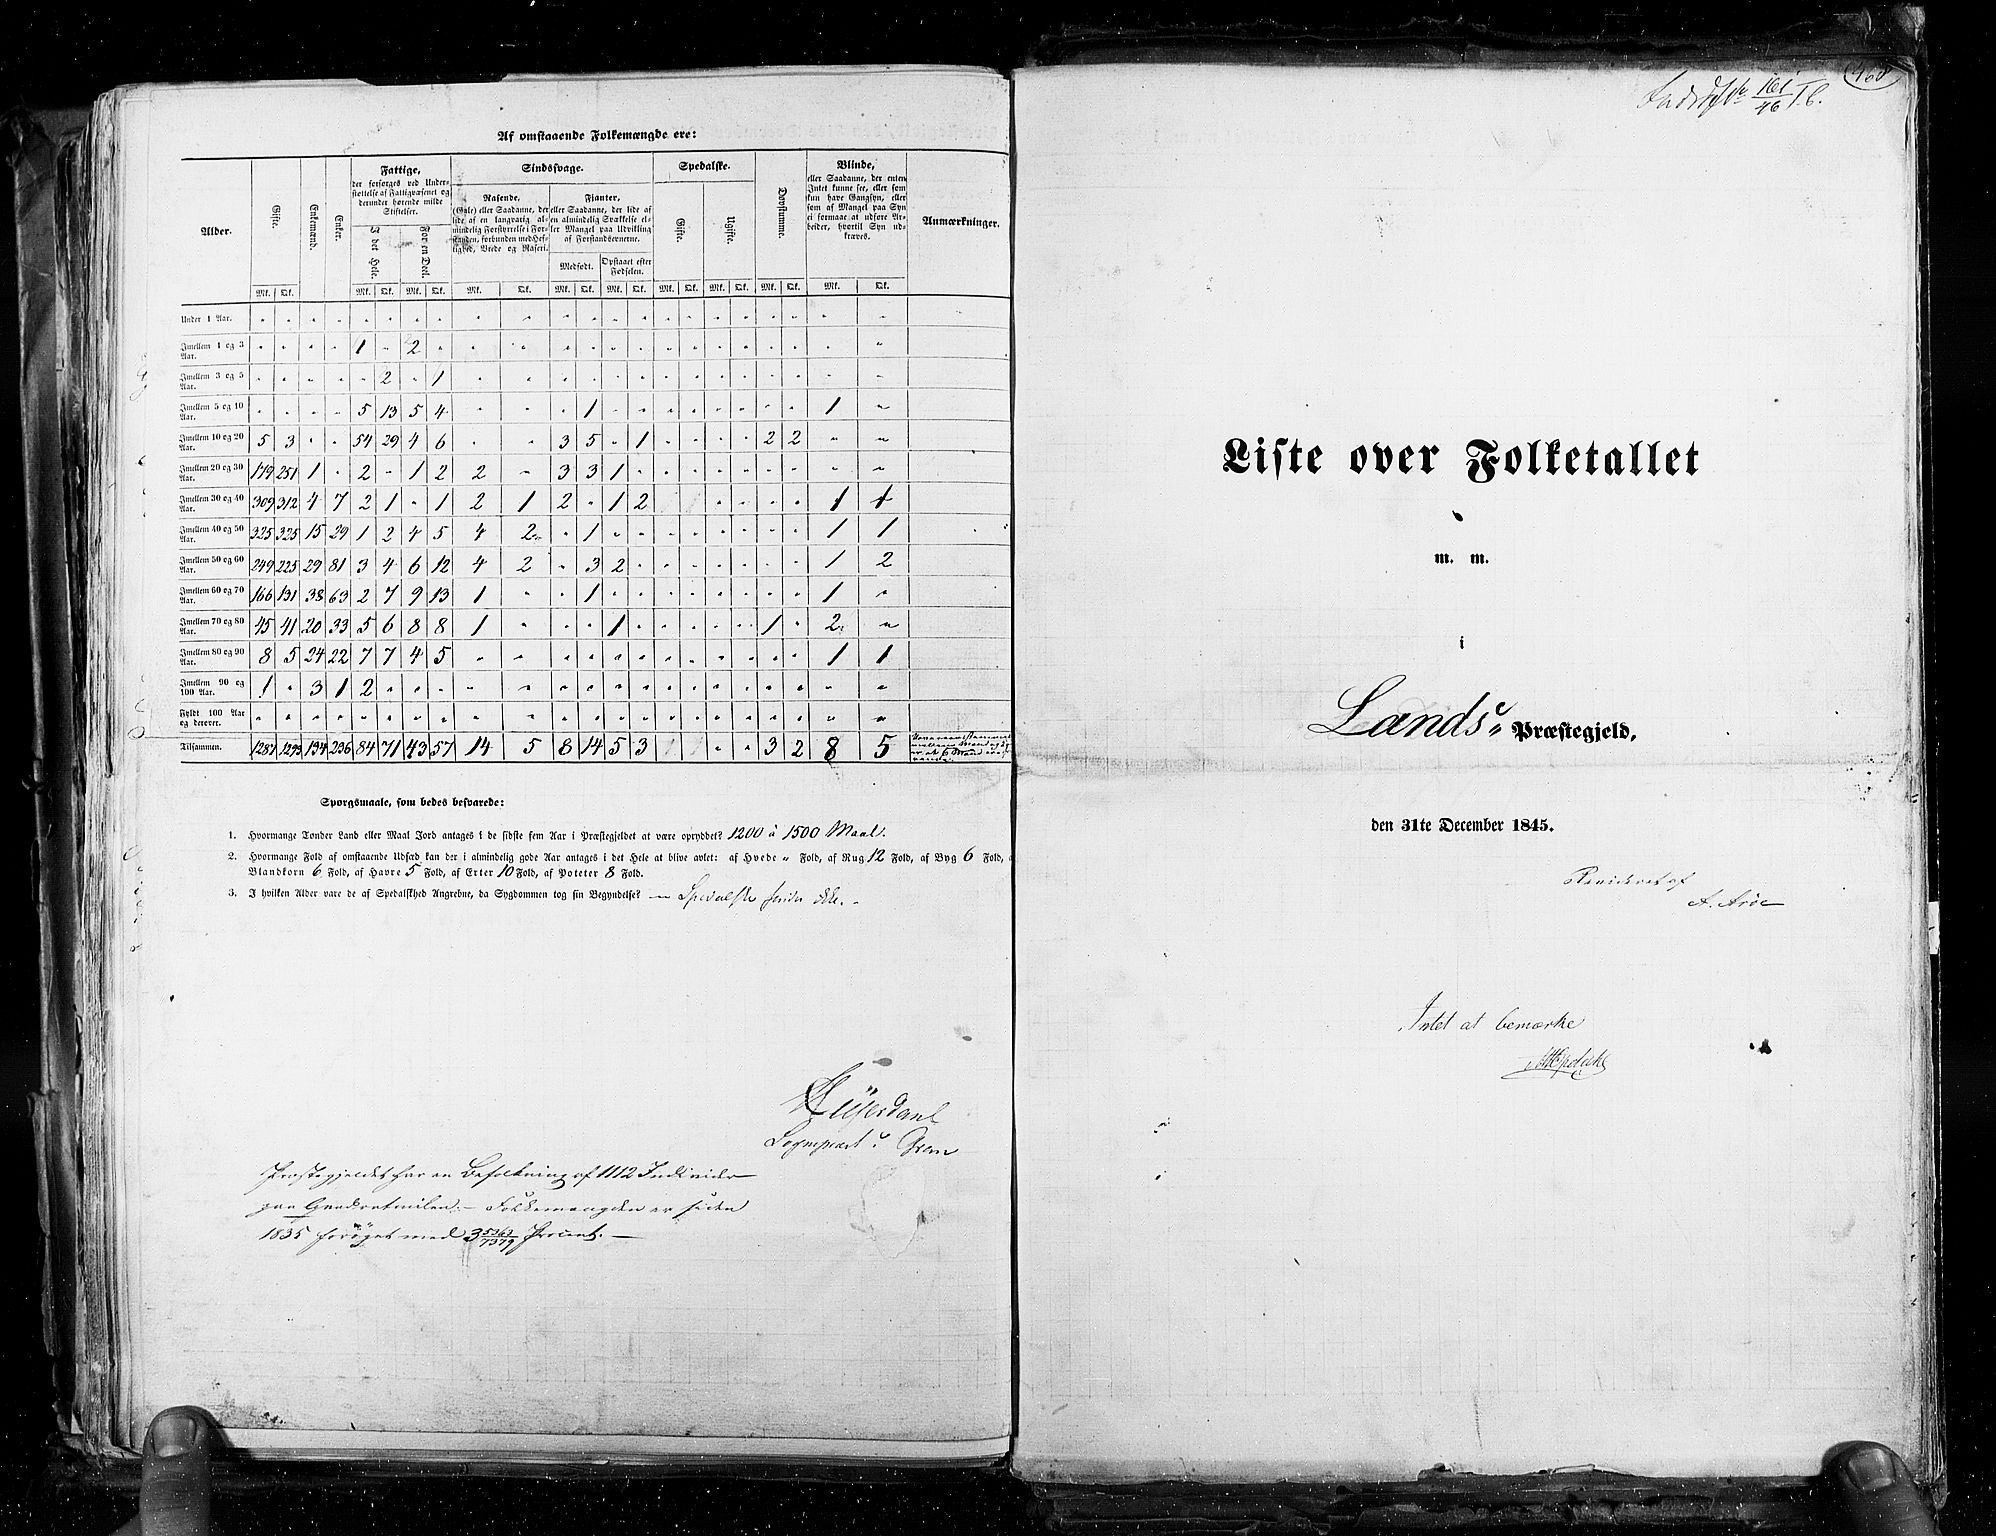 Af omstaaende Folkemængde ere:
Alder. Gifte. Enkemænd. Enker. Fattige, Sindssvage. Spedalske. Døvstumme. Blinde, Anmærkninger.
der forsørges ved Under-
støttelse af Fattigvæsenet og
derunder hørende milde
Stiftelser.
I det Hele. For en Deel.
Rasende,
(Gale) eller Saadanne, der
lide af en langvarig al-
mindelig Forstyrrelse i For-
standen, forbunden med Hef-
tighed, Vrede og Raseri.
Fjanter,
eller Saadanne, der lide af
en almindelig Svækkelse el-
ler Mangel paa Udvikling
af Forstandsevnerne.
Medfødt. Opstaaet efter Fødselen.
Gifte. Ugifte.
eller Saadanne, der enten
Intet kunne see, eller som
kun have Gangsyn, eller
som af Mangel paa Syn
ei formaae at udføre Ar-
beider, hvortil Syn ud-
kræves.
Mk. Qk. Mk. Qk. Mk. Qk. Mk. Qk. Mk. Qk. Mk. Qk. Mk. Qk. Mk. Qk. Mk. Qk. Mk. Qk.
Under 1 Aar. " " " " " " " " " " " " " " " " " " " " " "
Imellem 1 og 3 Aar. " " " " 1 " 2 " " " " " " " " " " " " " "
Imellem 3 og 5 Aar. " " " " " 2 " 1 " " " " " " " " " " " " " "
Imellem 5 og 10 Aar. " " " " 5 13 5 4 " " " 1 " " " " " " " " 1 "
Imellem 10 og 20 Aar. 5 3 " " 54 29 4 6 " " 3 5 " 1 " " " " 2 2 " "
Imellem 20 og 30 Aar. 179 251 1 " 2 " 1 2 2 " 3 3 1 " " " " " " " " "
Imellem 30 og 40 Aar. 309 312 4 7 2 1 " 1 2 1 2 " 1 2 " " " " 1 1
Imellem 40 og 50 Aar. 325 325 15 29 1 2 4 5 4 2 " 1 " " " " " " " " 1 1
Imellem 50 og 60 Aar. 249 225 29 81 3 4 6 12 4 2 " 3 2 " " " " " " " 1 2
Imellem 60 og 70 Aar. 166 131 38 63 2 7 9 13 1 " " 1 " " " " " " " " 1 "
Imellem 70 og 80 Aar. 45 41 20 33 5 6 8 8 1 " " " 1 " " " " " 1 " 2 "
Imellem 80 og 90 Aar. 8 5 24 22 7 7 4 5 " " " " " " " " " " " " 1 1
Imellem 90 og 100 Aar. 1 " 3 1 2 " " " " " " " " " " " " " " " " "
Fyldt 100 Aar og derover. " " " " " " " " " " " " " " " " " " " " " "
Tilsammen. 1287 1293 134 236 84 71 43 57 14 5 8 14 5 3 " " 3 2 8 5
Spørgsmaale, som bedes besvarede:
1. Hvormange Tønder Land eller Maal Jord antages i de sidste fem Aar i Præstegjeldet at være opryddet? 1200 à 1500 Maal.
2. Hvormange Fold af omstaaende Udsæd kan der i almindelig gode Aar antages i det Hele at blive avlet: af Hvede " Fold, af Rug 12 Fold, af Byg 6 Fold,
Blandkorn 6 Fold, af Havre 5 Fold, af Erter 10 Fold, af Poteter 8 Fold.
3. I hvilken Alder vare de af Spedalskhed Angrebne, da Sygdommen tog sin Begyndelse? — Spedalske findes ikke. -
Sognepræst i Gran
Præstegjeldet har en Befolkning af 1112 Individer
paa Qvadratmilen. - Folkemængden er siden
1835 forøget med 3 5363/7379 Procent. —
460
161/46 T. C.
Liste over Folketallet
m. m.
i
Lands Præstegjeld,
den 31te December 1845.
Revideret af
A. Arøe
Intet at bemærke